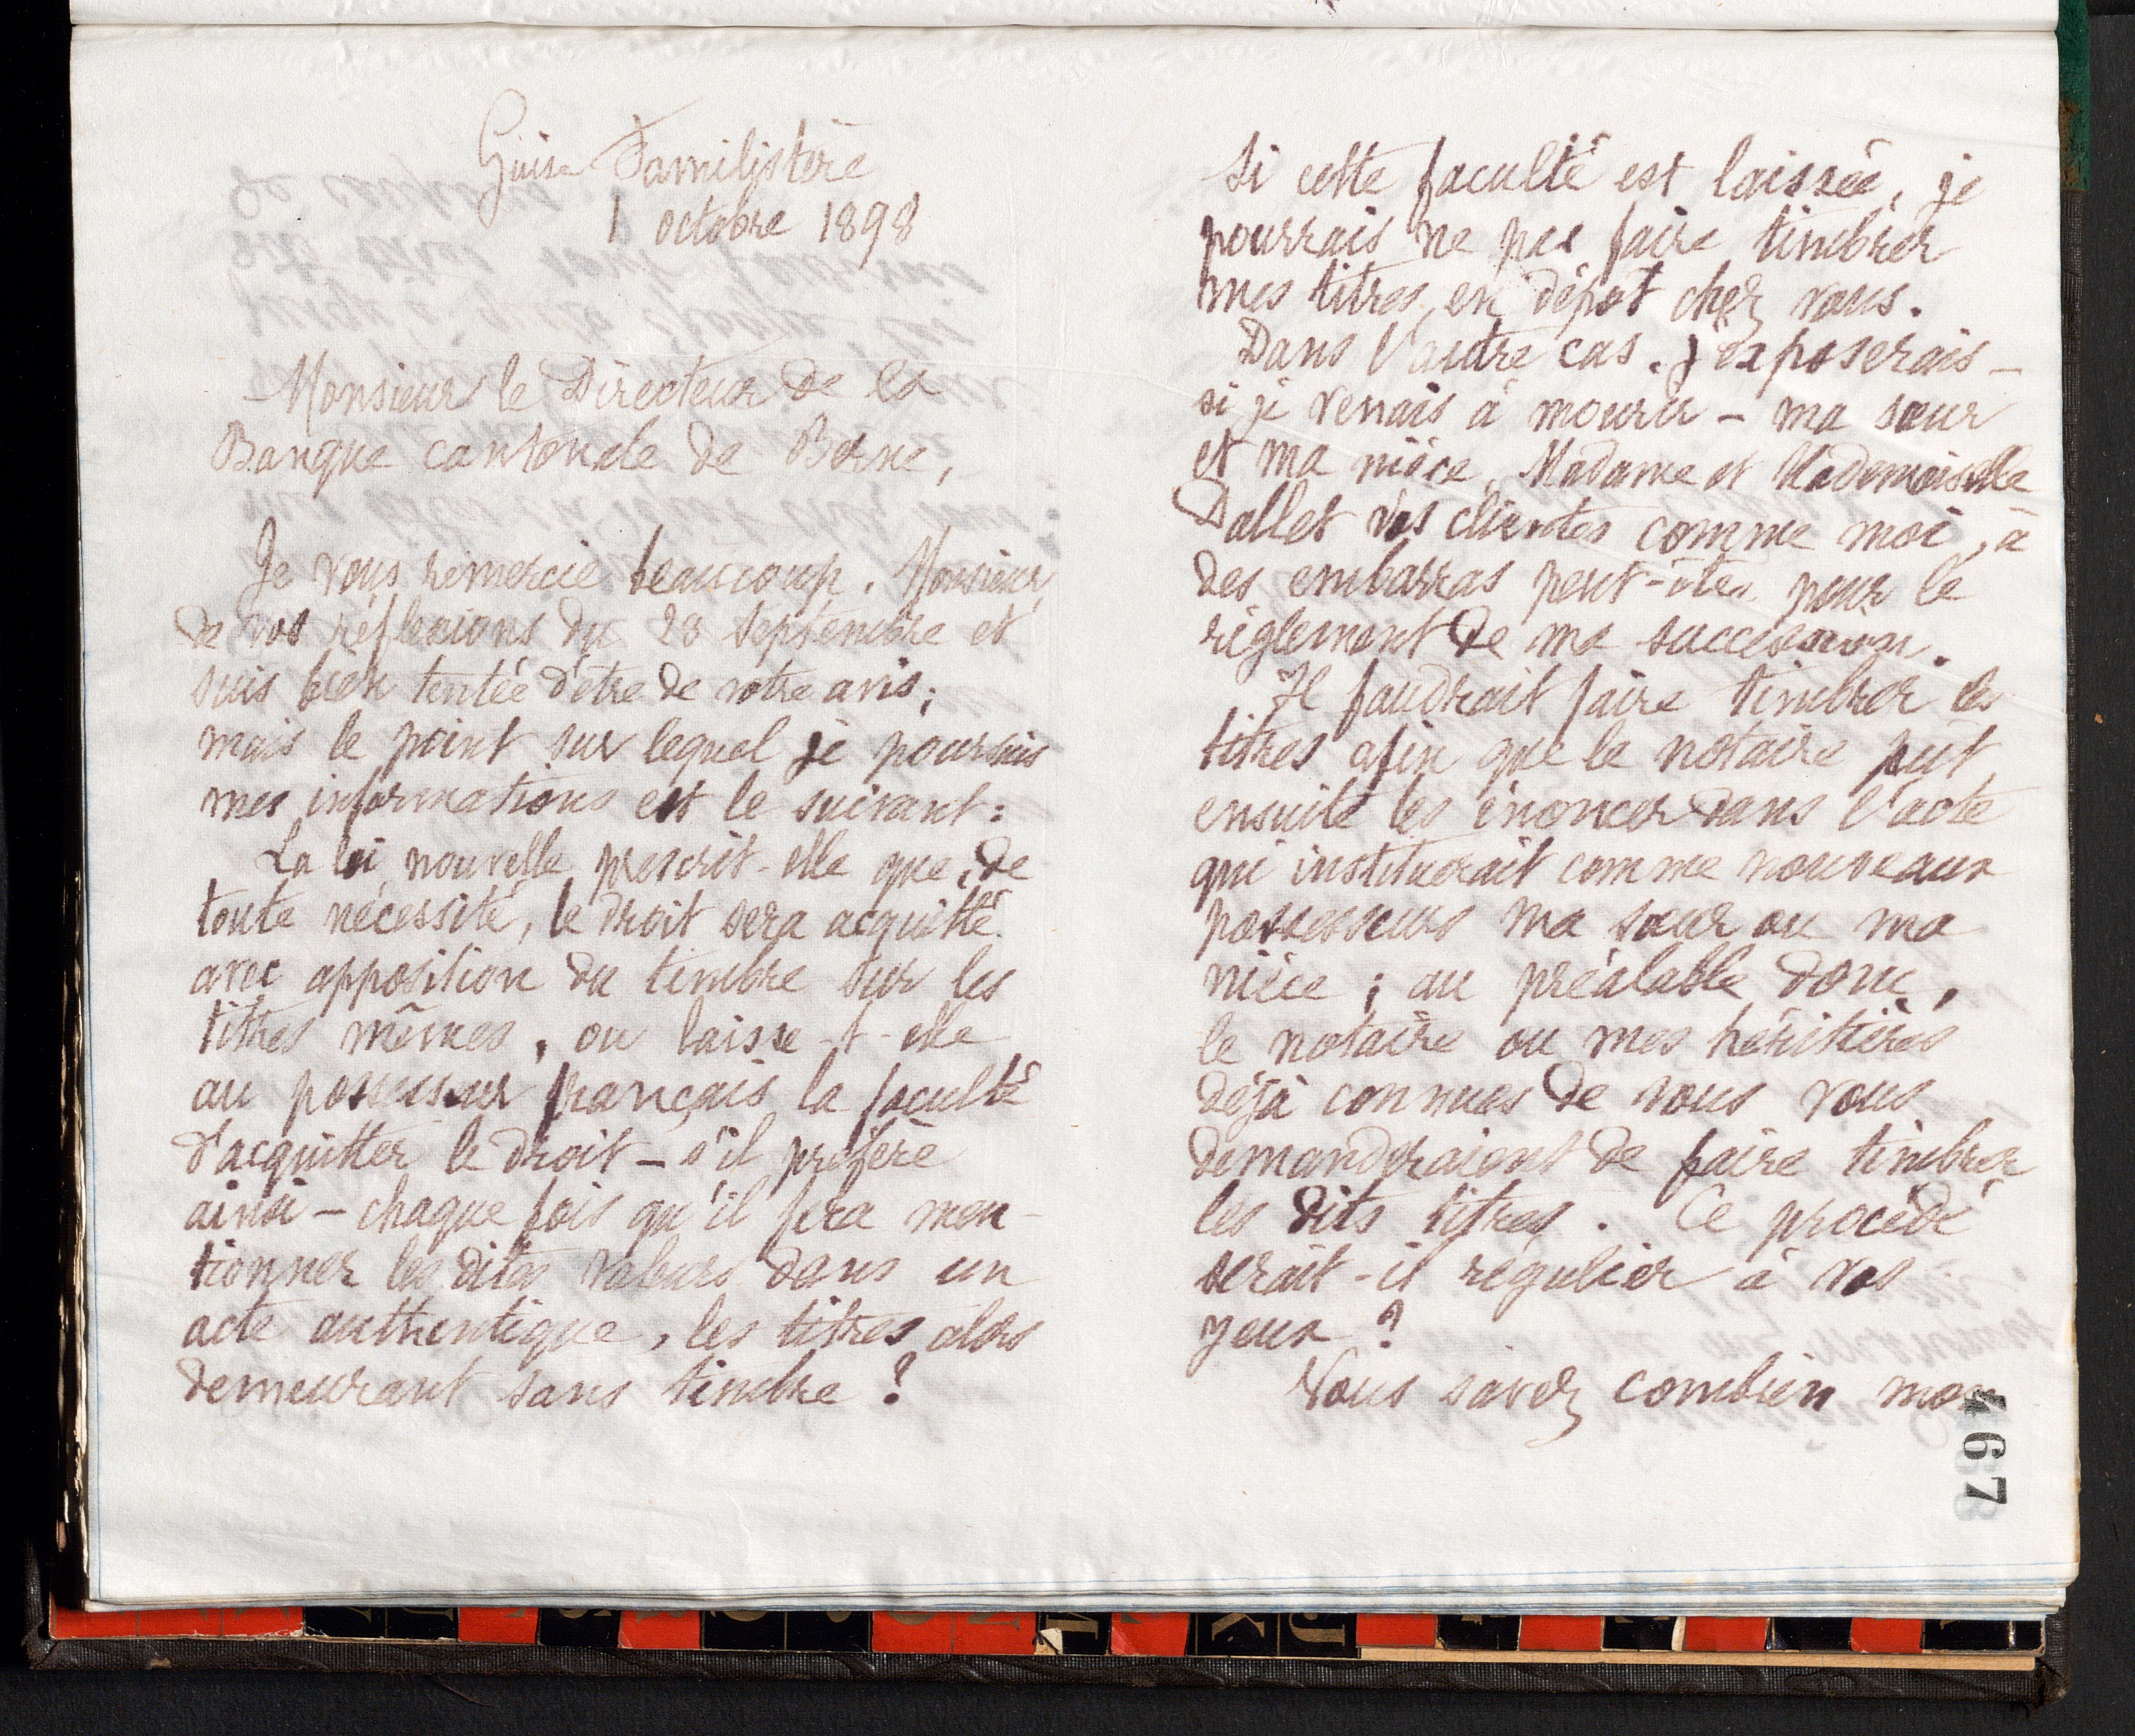 Guise Familistère
1 octobre 1898
Monsieur le Directeur de la
Banque cantonale de Berne,
Je vous remercie beaucoup, Monsieur,
de vos réflexions du 28 septembre et
suis bien tentée d'être de votre avis;
mais le point sur lequel je poursuis
mes informations est le suivant:
La loi nouvelle prescrit-elle que, de
toute nécessité, le droit sera acquitté
avec apposition du timbre sur les
titres mêmes, ou laisse-t-elle
au possesseur français la faculté
d'acquitter le droit - s'il préfère
ainsi - chaque fois qu'il fera men-
tionner les dites valeurs dans un
acte authentique, les titres alors
demeurant sans timbre?
Si cette faculté est laissée, je
pourrais ne pas faire timbrer
mes titres en dépôt chez vous.
Dans l'autre cas, j'exposerais -
si je venais à mourir - ma sœur
et ma nièce, Madame et Mademoiselle
Dallet vos clientes comme moi, à
des embarras peut-être pour le
règlement de ma succession.
Il faudrait faire timbrer les
titres afin que le notaire pût
ensuite les énoncer dans l'acte
qui instituerait comme nouveaux
possesseurs ma sœur ou ma
nièce; au préalable donc,
le notaire ou mes héritières
déjà connues de vous vous
demanderaient de faire timbrer
les dits titres. Ce procédé
serait-il régulier à vos
yeux?
Vous savez combien mon
467